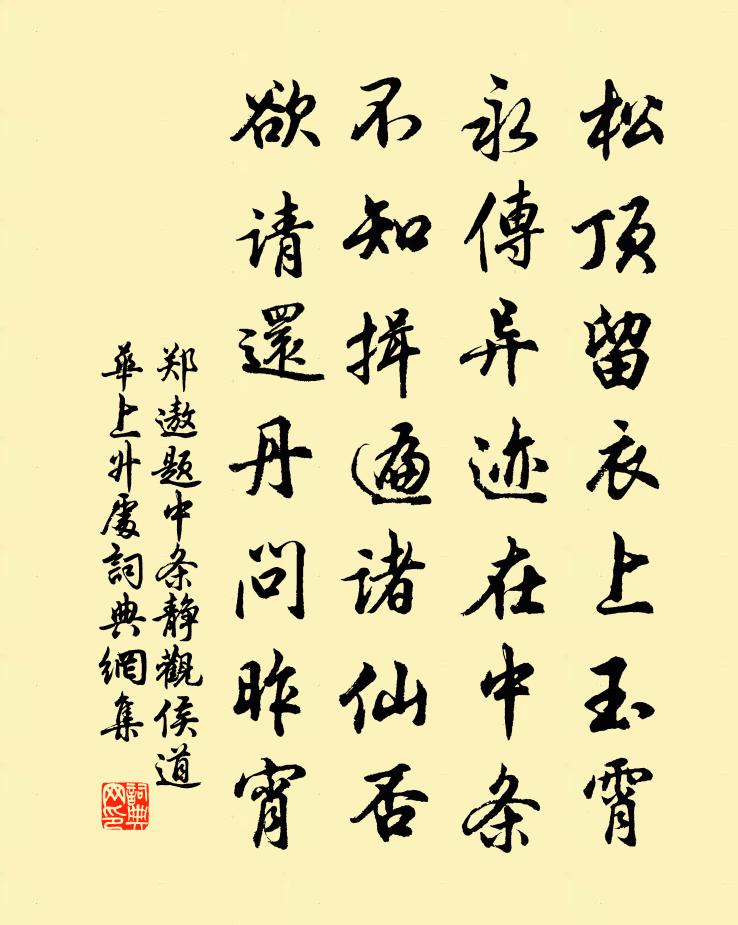 松顶留衣上玉霄
永傳异迹在中条
不知揖遍诸仙否
欲请還丹问昨宵
郑遨题中条静觀侯道
華上升處詞典網集
詞典
网印